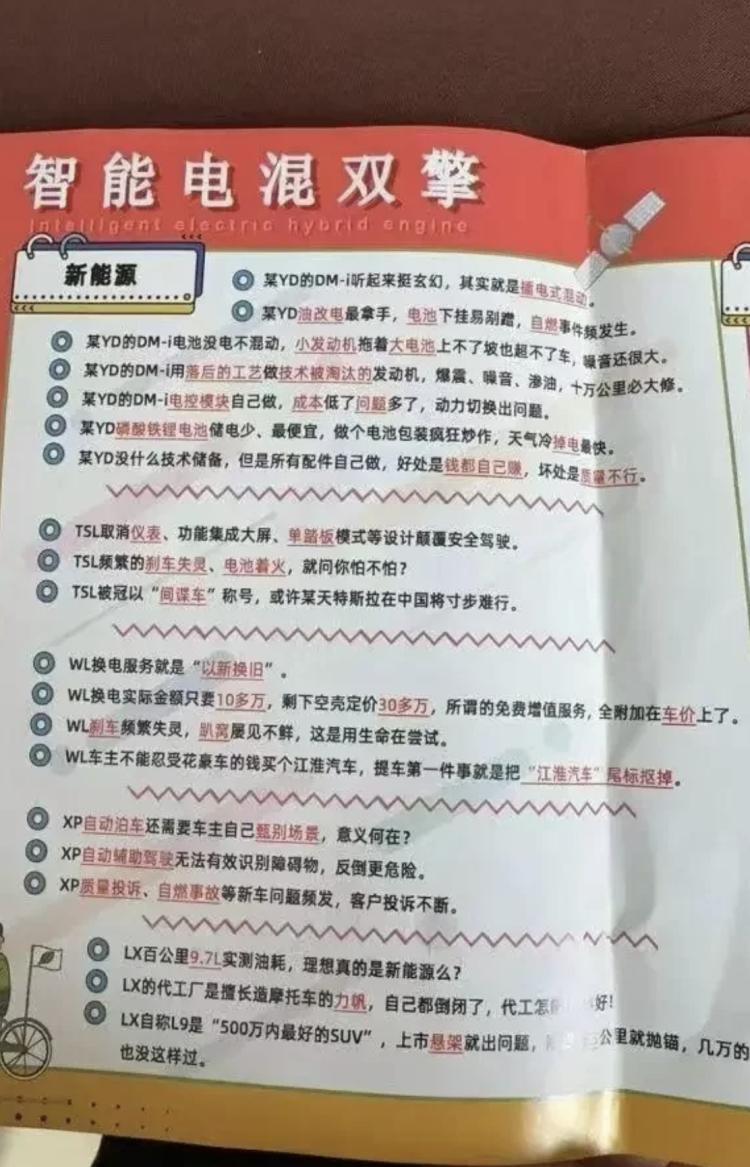 智能电混双擎
Intelligent electric hybrid engine
新能源
某YD的DM-i听起来挺玄幻，其实就是插电式混动。
某YD油改电最拿手，电池下挂易剐蹭，自燃事件频发生。
某YD的DM-i电池没电不混动，小发动机拖着大电池上不了坡也超不了车，噪音还很大。
某YD的DM-i用落后的工艺做技术被淘汰的发动机，爆震、噪音、渗油，十万公里必大修。
某YD的DM-i电控模块自己做，成本低了问题多了，动力切换出问题。
某YD磷酸铁锂电池储电少、最便宜，做个电池包装疯狂炒作，天气冷掉电最快。
某YD没什么技术储备，但是所有配件自己做，好处是钱都自己赚，坏处是质量不行。
TSL取消仪表、功能集成大屏、单踏板模式等设计颠覆安全驾驶。
TSL频繁的刹车失灵、电池着火，就问你怕不怕？
TSL被冠以“间谍车”称号，或许某天特斯拉在中国将寸步难行。
WL换电服务就是“以新换旧”。
WL换电实际金额只要10多万，剩下空壳定价30多万，所谓的免费增值服务，全附加在车价上了。
WL刹车频繁失灵，趴窝屡见不鲜，这是用生命在尝试。
WL车主不能忍受花豪车的钱买个江淮汽车，提车第一件事就是把“江淮汽车”尾标抠掉。
XP自动泊车还需要车主自己甄别场景，意义何在？
XP自动辅助驾驶无法有效识别障碍物，反倒更危险。
XP质量投诉、自燃事故等新车问题频发，客户投诉不断。
LX百公里9.7L实测油耗，理想真的是新能源么？
LX的代工厂是擅长造摩托车的力帆，自己都倒闭了，代工怎 好！
LX自称L9是“500万内最好的SUV”，上市悬架就出问题， 公里就抛锚，几万的
也没这样过。